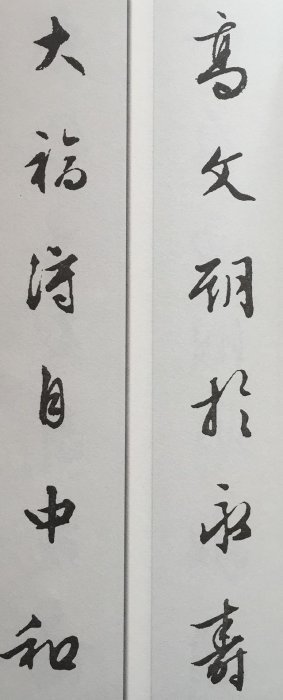 高文期於永壽
大福得自中和